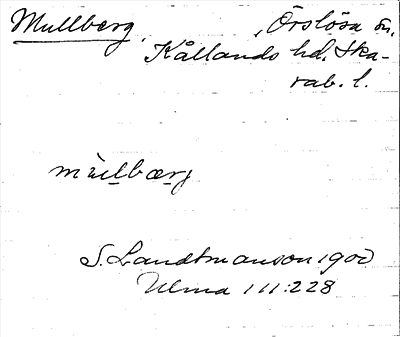 Mullberg. , Örslösa sn,
Kållands hd. Ska-
rab. l.
mùllbærj
S. Landtmanson 1900
Ulma 111:228